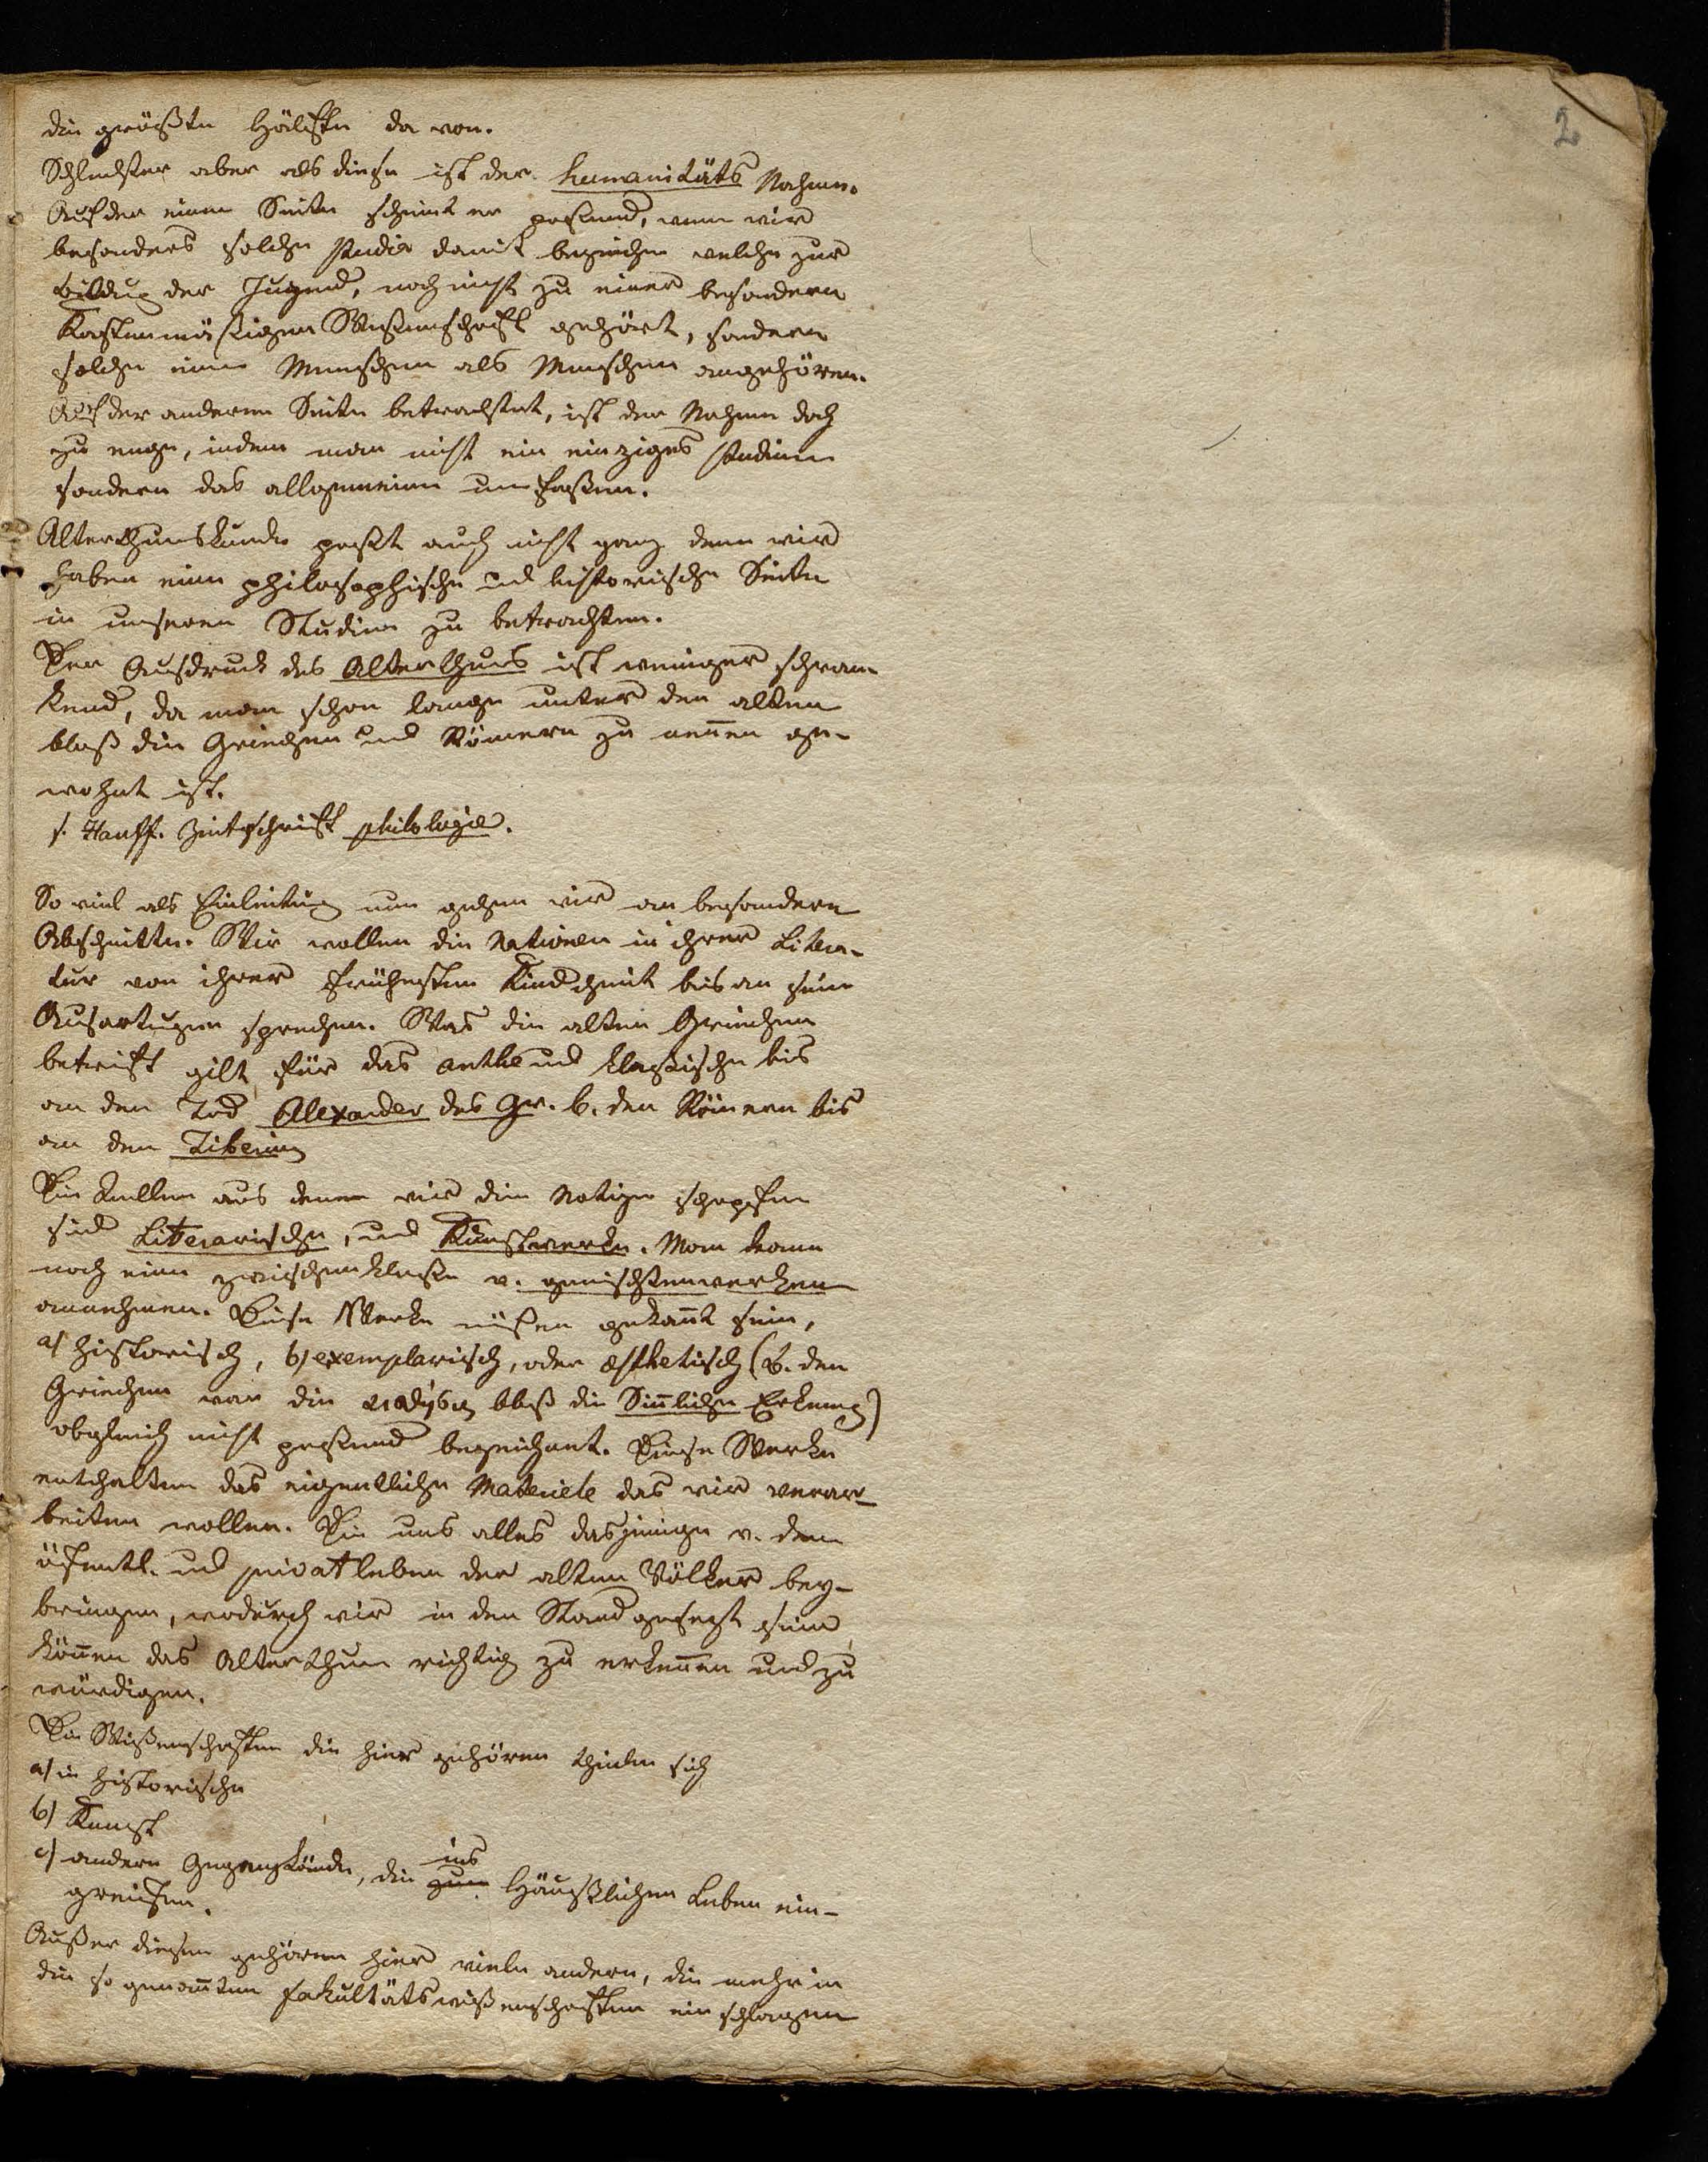 2
die größte Hälfte da von.
Schlechter aber als diese ist der humanitäts Nahme.
Auf der einen Seite scheint er passend, wenn wir
besonders solche studia damit bezeichen welche zur
Bildung der Jugend, noch nicht zu einer besondern
Kastenmäßigen Wißenschaft gehört, sondern
solche einen Menschen als Menschen angehören.
Auf der anderen Seite betrachtet, ist der Nahme doch
zu enge, indem man nicht ein einziges studium
sondern das allgemeine umfaßen.
Alterthumskunde paßt auch nicht ganz denn wir
haben eine philosophische und historische Seite
in unseren Studien zu betrachten.
Der Ausdruck des Alterthums ist weniger schwan-
kend, da man schon lange unter den alten
bloß die Griechen und Römern zu nennen ge-
wohnt ist.
s. Hauff. Zeitschrift philologie.
So viel als Einleitung nun gehen wir an besondere
Abschnitte. Wir wollen die Nationen in ihrer Litera-
tur von ihrer frühesten Kindheit bis an seine
Ausartugen sprechen. Was die alten Griechen
betrift gilt für das antke und klaßische bis
an den Tod Alexander des Gr. b. den Römern bis
an den Tiberius
Die Quellen aus denen wir die Notizen schöpfen
sind Literarische, und Kunstwerke. Man kann
noch eine zwischenklaße v. gemischtenwerken
annehmen. Diese Werke müßen gekannt sein,
a) historisch, b) exemplarisch, oder æsthetisch (b. den
Griechen war die bloß die Sinnliche Erkenng)
obgleich nicht paßend bezeichnet. Diese Werke
enthalten das eigentliche Materiele das wir verar-
beiten wollen. Die uns alles dasjenige v. dem
öfentl. und privatleben der alten Völker bey-
bringen, wodurch wir in den Stand gesezt sein
können das Alterthum richtig zu erkennen und zu
würdigen.
Die Wißenschaften die hier gehören theilen sich
a) in historische
b) Kunst
c) andere Gegenstände, die zum ins Häußlichen Leben ein-
greifen.
Außer diesen gehören hier viele andere, die mehr in
die so genannten fakultätswißenschaften ein schlagen